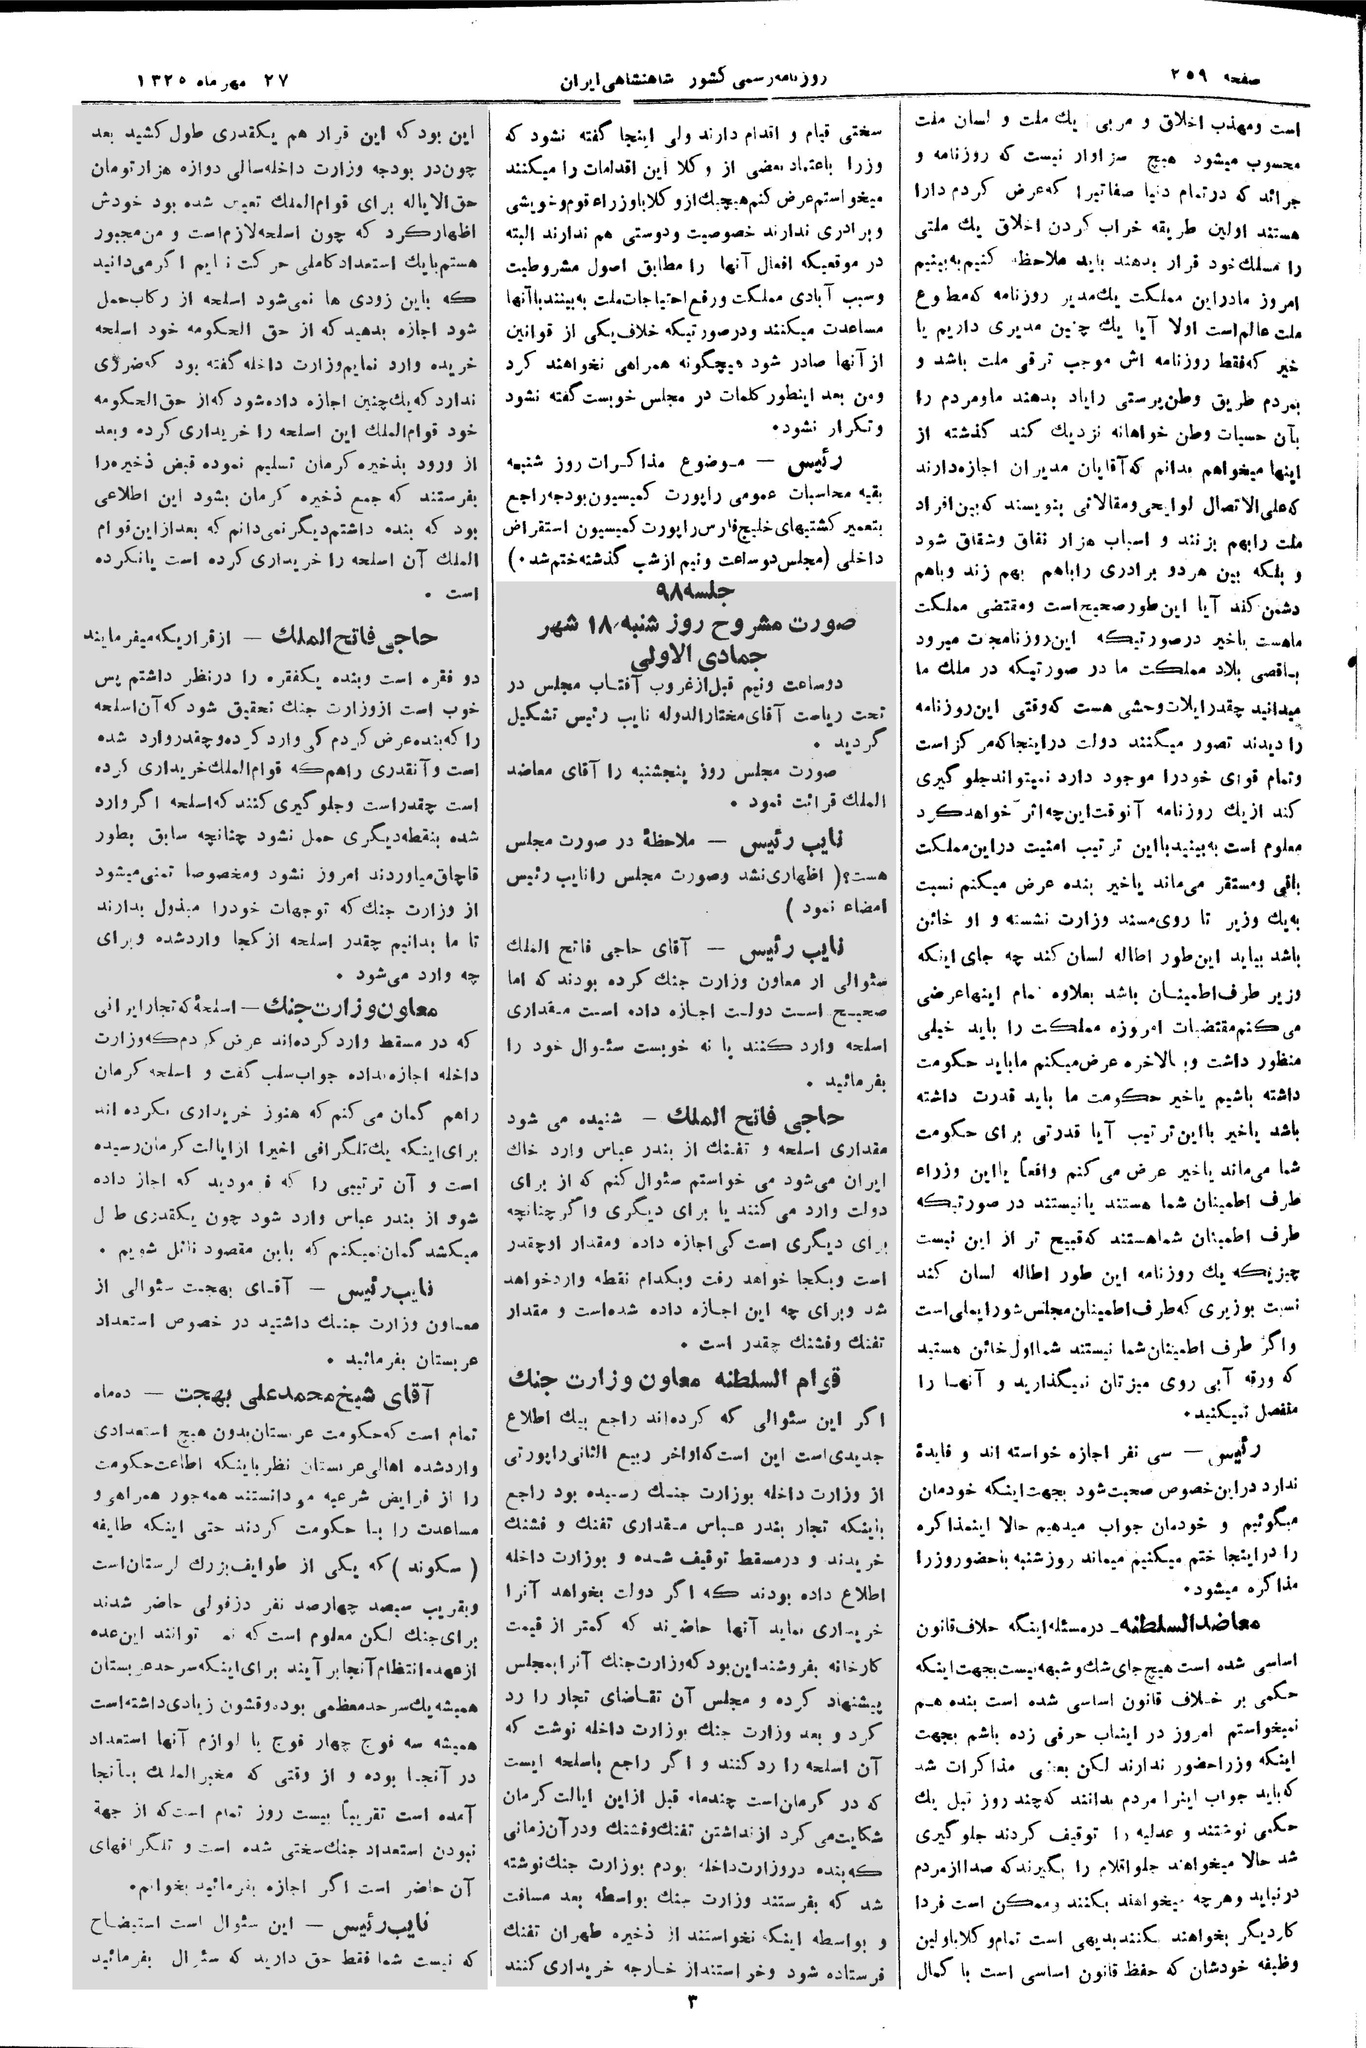 صفحه ۲۵۹
روزنامه رسمی کشور شاهنشاهی ایران
۲۷ مهر ماه ۱۳۲۵
است ومهذب اخلاق و مربی یك ملت و لسان ملت
محسوب میشود هیچ سزاوار نیست که روزنامه و
جرائد که درتمام دنیا صفاتیرا که عرض کردم دارا
هستند اولین طریقه خراب کردن اخلاق یك ملتی
را مسلك خود قرار بدهند باید ملاحظه کنیم به بینیم
امروز مادراین مملکت یك مدیر روزنامه که مطبوع
ملت عالم است اولا آیا یك چنین مدیری داریم یا
خیر که فقط روزنامه اش موجب ترقی ملت باشد و
بمردم طریق وطن پرستی رایاد بدهند ماومردم را
بآن حسیات وطن خواهانه نزدیك کند گذشته از
اینها میخواهم بدانم که آقایان مدیران اجازه دارند
که علی الاتصال لوایحی ومقالاتی بنویسند که بین افراد
ملت رابهم بزنند و اسباب هزار نفاق وشقاق شود
و بلکه بین هر دو برادری راباهم بهم زند وباهم
دشمن کند آیا این طور صحیح است ومقتضی مملکت
ماهست یاخیر درصورتیکه این روزنامجات میرود
باقصی بلاد مملکت ما در صورتیکه در ملك ما
میدانید چقدر ایلات وحشی هست که وقتی این روزنامه
را دیدند تصور میکنند دولت دراینجا که مرکز است
وتمام قوای خودرا موجود دارد نمیتواند جلوگیری
کند ازیك روزنامه آنوقت این چه اثر خواهد کرد
معلوم است به بینید بااین ترتیب امنیت دراین مملکت
باقی ومستقر می ماند یاخیر بنده عرض میکنم نسبت
به یك وزیر تا روی مسند وزارت نشسته و او خائن
باشد بیاید این طور اطاله لسان کند چه جای اینکه
وزیر طرف اطمینان باشد بعلاوه تمام اینها عرضی
می کنم مقتضیات امروزه مملکت را باید خیلی
منظور داشت وبالاخره عرض میکنم ماباید حکومت
داشته باشیم یاخیر حکومت ما باید قدرت داشته
باشد یاخیر بااین ترتیب آیا قدرتی برای حکومت
شما می ماند یاخیر عرض می کنم واقعاً یااین وزراء
طرف اطمینان شما هستند یانیستند در صورتیکه
طرف اطمینان شماهستند که قبیح تر از این نیست
چیزیکه یك روزنامه این طور اطاله لسان کند
نسبت بوزیری که طرف اطمینان مجلس شورایملی است
واگر طرف اطمینان شما نیستند شما اول خائن هستید
که ورقه آبی روی میزتان نمیگذارید و آنها را
منفصل نمیکنید.
رئیس — سی نفر اجازه خواسته اند و فایدهٔ
ندارد دراین خصوص صحبت شود بجهت اینکه خودمان
میگوئیم و خودمان جواب میدهیم حالا اینمذاکره
را دراینجا ختم میکنیم میماند روز شنبه باحضور وزرا
مذاکره میشود.
معاضد السلطنه ـ در مسئله اینکه خلاف قانون
اساسی شده است هیچ جای شك و شبهه نیست بجهت اینکه
حکمی بر خلاف قانون اساسی شده است بنده هم
نمیخواستم امروز در اینباب حرفی زده باشم بجهت
اینکه وزراحضور ندارند لکن بعضی مذاکرات شد
که باید جواب اینرا مردم بدانند که چند روز قبل یك
حکمی نوشتند و عدلیه را توقیف کردند جلوگیری
شد حالا میخواهند جلو اقلام را بگیرند که صدا از مردم
درنیاید وهرچه میخواهند بکنند وممکن است فردا
کاردیگر بخواهند بکنند بدیهی است تمام وکلا باولین
وظیفه خودشان که حفظ قانون اساسی است با کمال
سختی قیام و اقدام دارند ولی اینجا گفته نشود که
وزرا باعتماد بعضی از وکلا این اقدامات را میکنند
میخواستم عرض کنم هیچیك از وکلا باوزراء قوم و خویشی
وبرادری ندارند خصوصیت ودوستی هم ندارند البته
در موقعیکه افعال آنها را مطابق اصول مشروطیت
وسبب آبادی مملکت ورفع احتیاجات ملت به بینند باآنها
مساعدت میکنند ودرصورتیکه خلاف یکی از قوانین
از آنها صادر شود هیچگونه همراهی نخواهند کرد
ومن بعد اینطور کلمات در مجلس خوبست گفته نشود
وتکرار نشود.
رئیس — موضوع مذاکرات روز شنبه
بقیه محاسبات عمومی راپورت کمیسیون بودجه راجع
بتعمیر کشتیهای خلیج فارس راپورت کمیسیون استقراض
داخلی (مجلس دوساعت ونیم از شب گذشته ختم شد.)
جلسه ۹۸
صورت مشروح روز شنبه ۱۸ شهر
جمادی الاولی
دوساعت ونیم قبل از غروب آفتاب مجلس در
تحت ریاست آقای مختارالدوله نایب رئیس تشکیل
گردید .
صورت مجلس روز پنجشنبه را آقای معاضد
الملك قرائت نمود .
نایب رئیس — ملاحظهٔ در صورت مجلس
هست؟( اظهاری نشد وصورت مجلس رانایب رئیس
امضاء نمود )
نایب رئیس — آقای حاجی فاتح الملك
سئوالی از معاون وزارت جنك کرده بودند که اما
صحیح است دولت اجازه داده است مقداری
اسلحه وارد کنند یا نه خوبست سئوال خود را
بفرمائید .
حاجی فاتح الملك — شنیده می شود
مقداری اسلحه و تفنك از بندر عباس وارد خاك
ایران می شود می خواستم سئوال کنم که از برای
دولت وارد می کنند یا برای دیگری واگر چنانچه
برای دیگری است کی اجازه داده ومقدار اوچقدر
است وبکجا خواهد رفت وبکدام نقطه واردخواهد
شد وبرای چه این اجازه داده شده است و مقدار
تفنك وفشنك چقدر است .
قوام السلطنه معاون وزارت جنك
اگر این سئوالی که کرده اند راجع بیك اطلاع
جدیدی است این است که اواخر ربیع الثانی راپورتی
از وزارت داخله بوزارت جنك رسیده بود راجع
باینکه تجار بندر عباس مقداری تفنك و فشنك
خریدند و در مسقط توقیف شده و بوزارت داخله
اطلاع داده بودند که اگر دولت بخواهد آنرا
خریداری نماید آنها حاضرند که کمتر از قیمت
کارخانه بفروشند این بود که وزارت جنك آنرا بمجلس
پیشنهاد کرده و مجلس آن تقاضای تجار را رد
کرد و بعد وزارت جنك بوزارت داخله نوشت که
آن اسلحه را رد کنند و اگر راجع باسلحه ایست
که در کرمان است چندماه قبل از این ایالت کرمان
شکایت می کرد از نداشتن تفنك وفشنك ودرآن زمانی
که بنده در وزارت داخله بودم بوزارت جنك نوشته
شد که بفرستند وزارت جنك بواسطه بعد مسافت
و بواسطه اینکه نخواستند از ذخیره طهران تفنك
فرستاده شود وخواستند از خارجه خریداری کنند
این بود که این قرار هم یکقدری طول کشید بعد
چون در بودجه وزارت داخله سالی دوازه هزار تومان
حق الایاله برای قوام الملك تعیین شده بود خودش
اظهار کرد که چون اسلحه لازم است و من مجبور
هستم بایك استعداد کاملی حرکت نمایم اگر می دانید
که باین زودی ها نمی شود اسلحه از رکاب حمل
شود اجازه بدهید که از حق الحکومه خود اسلحه
خریده وارد نمایم وزارت داخله گفته بود که ضرری
ندارد که یك چنین اجازه داده شود که از حق الحکومه
خود قوام الملك این اسلحه را خریداری کرده وبعد
از ورود بذخیره کرمان تسلیم نموده قبض ذخیره را
بفرستند که جمع ذخیره کرمان بشود این اطلاعی
بود که بنده داشتم دیگر نمی دانم که بعد از این قوام
الملك آن اسلحه را خریداری کرده است یانکرده
است .
حاجی فاتح الملك — ازقراریکه میفرمایند
دو فقره است وبنده یکفقره را درنظر داشتم پس
خوب است از وزارت جنك تحقیق شود که آن اسلحه
را که بنده عرض کردم کی وارد کرده وچقدر وارد شده
است وآنقدری راهم که قوام الملك خریداری کرده
است چقدر است وجلوگیری کنند که اسلحه اگر وارد
شده بنقطه دیگری حمل نشود چنانچه سابق بطور
قاچاق میاوردند امروز نشود ومخصوصا تمنی میشود
از وزارت جنك که توجهات خودرا مبذول بدارند
تا ما بدانیم چقدر اسلحه از کجا وارد شده وبرای
چه وارد می شود .
معاون وزارت جنك — اسلحهٔ که تجار ایرانی
که در مسقط وارد کرده اند عرض کردم که وزارت
داخله اجازه نداده جواب سلب گفت و اسلحه کرمان
راهم گمان می کنم که هنوز خریداری نکرده اند
برای اینکه یك تلگرافی اخیرا از ایالت کرمان رسیده
است و آن ترتیبی را که فرمودید که اجاز داده
شود از بندر عباس وارد شود چون یکقدری طول
میکشد گمان نمیکنم که باین مقصود نائل شویم .
نایب رئیس — آقای بهجت سئوالی از
معاون وزارت جنك داشتید در خصوص استعداد
عربستان بفرمائید .
آقای شیخ محمدعلی بهجت — ده ماه
تمام است که حکومت عربستان بدون هیچ استعدادی
واردشده اهالی عربستان نظر باینکه اطاعت حکومت
را از فرایض شرعیه می دانستند همه جور همراهی و
مساعدت را با حکومت کردند حتی اینکه طایفه
( سکوند ) که یکی از طوایف بزرك لرستان است
وبقریب سیصد چهارصد نفر دزفولی حاضر شدند
برای جنك لکن معلوم است که نمی توانند این عده
از عهده انتظام آنجا برآیند برای اینکه سرحد عربستان
همیشه یك سرحد معظمی بوده وقشون زیادی داشته است
همیشه سه فوج چهار فوج با لوازم آنها استعداد
در آنجا بوده و از وقتی که مخبر الملك بآنجا
آمده است تقریباً بیست روز تمام است که از جهة
نبودن استعداد جنك سختی شده است و تلگرافهای
آن حاضر است اگر اجازه بفرمائید بخوانم.
نایب رئیس — این سئوال است استیضاح
که نیست شما فقط حق دارید که سئوال بفرمائید
۳